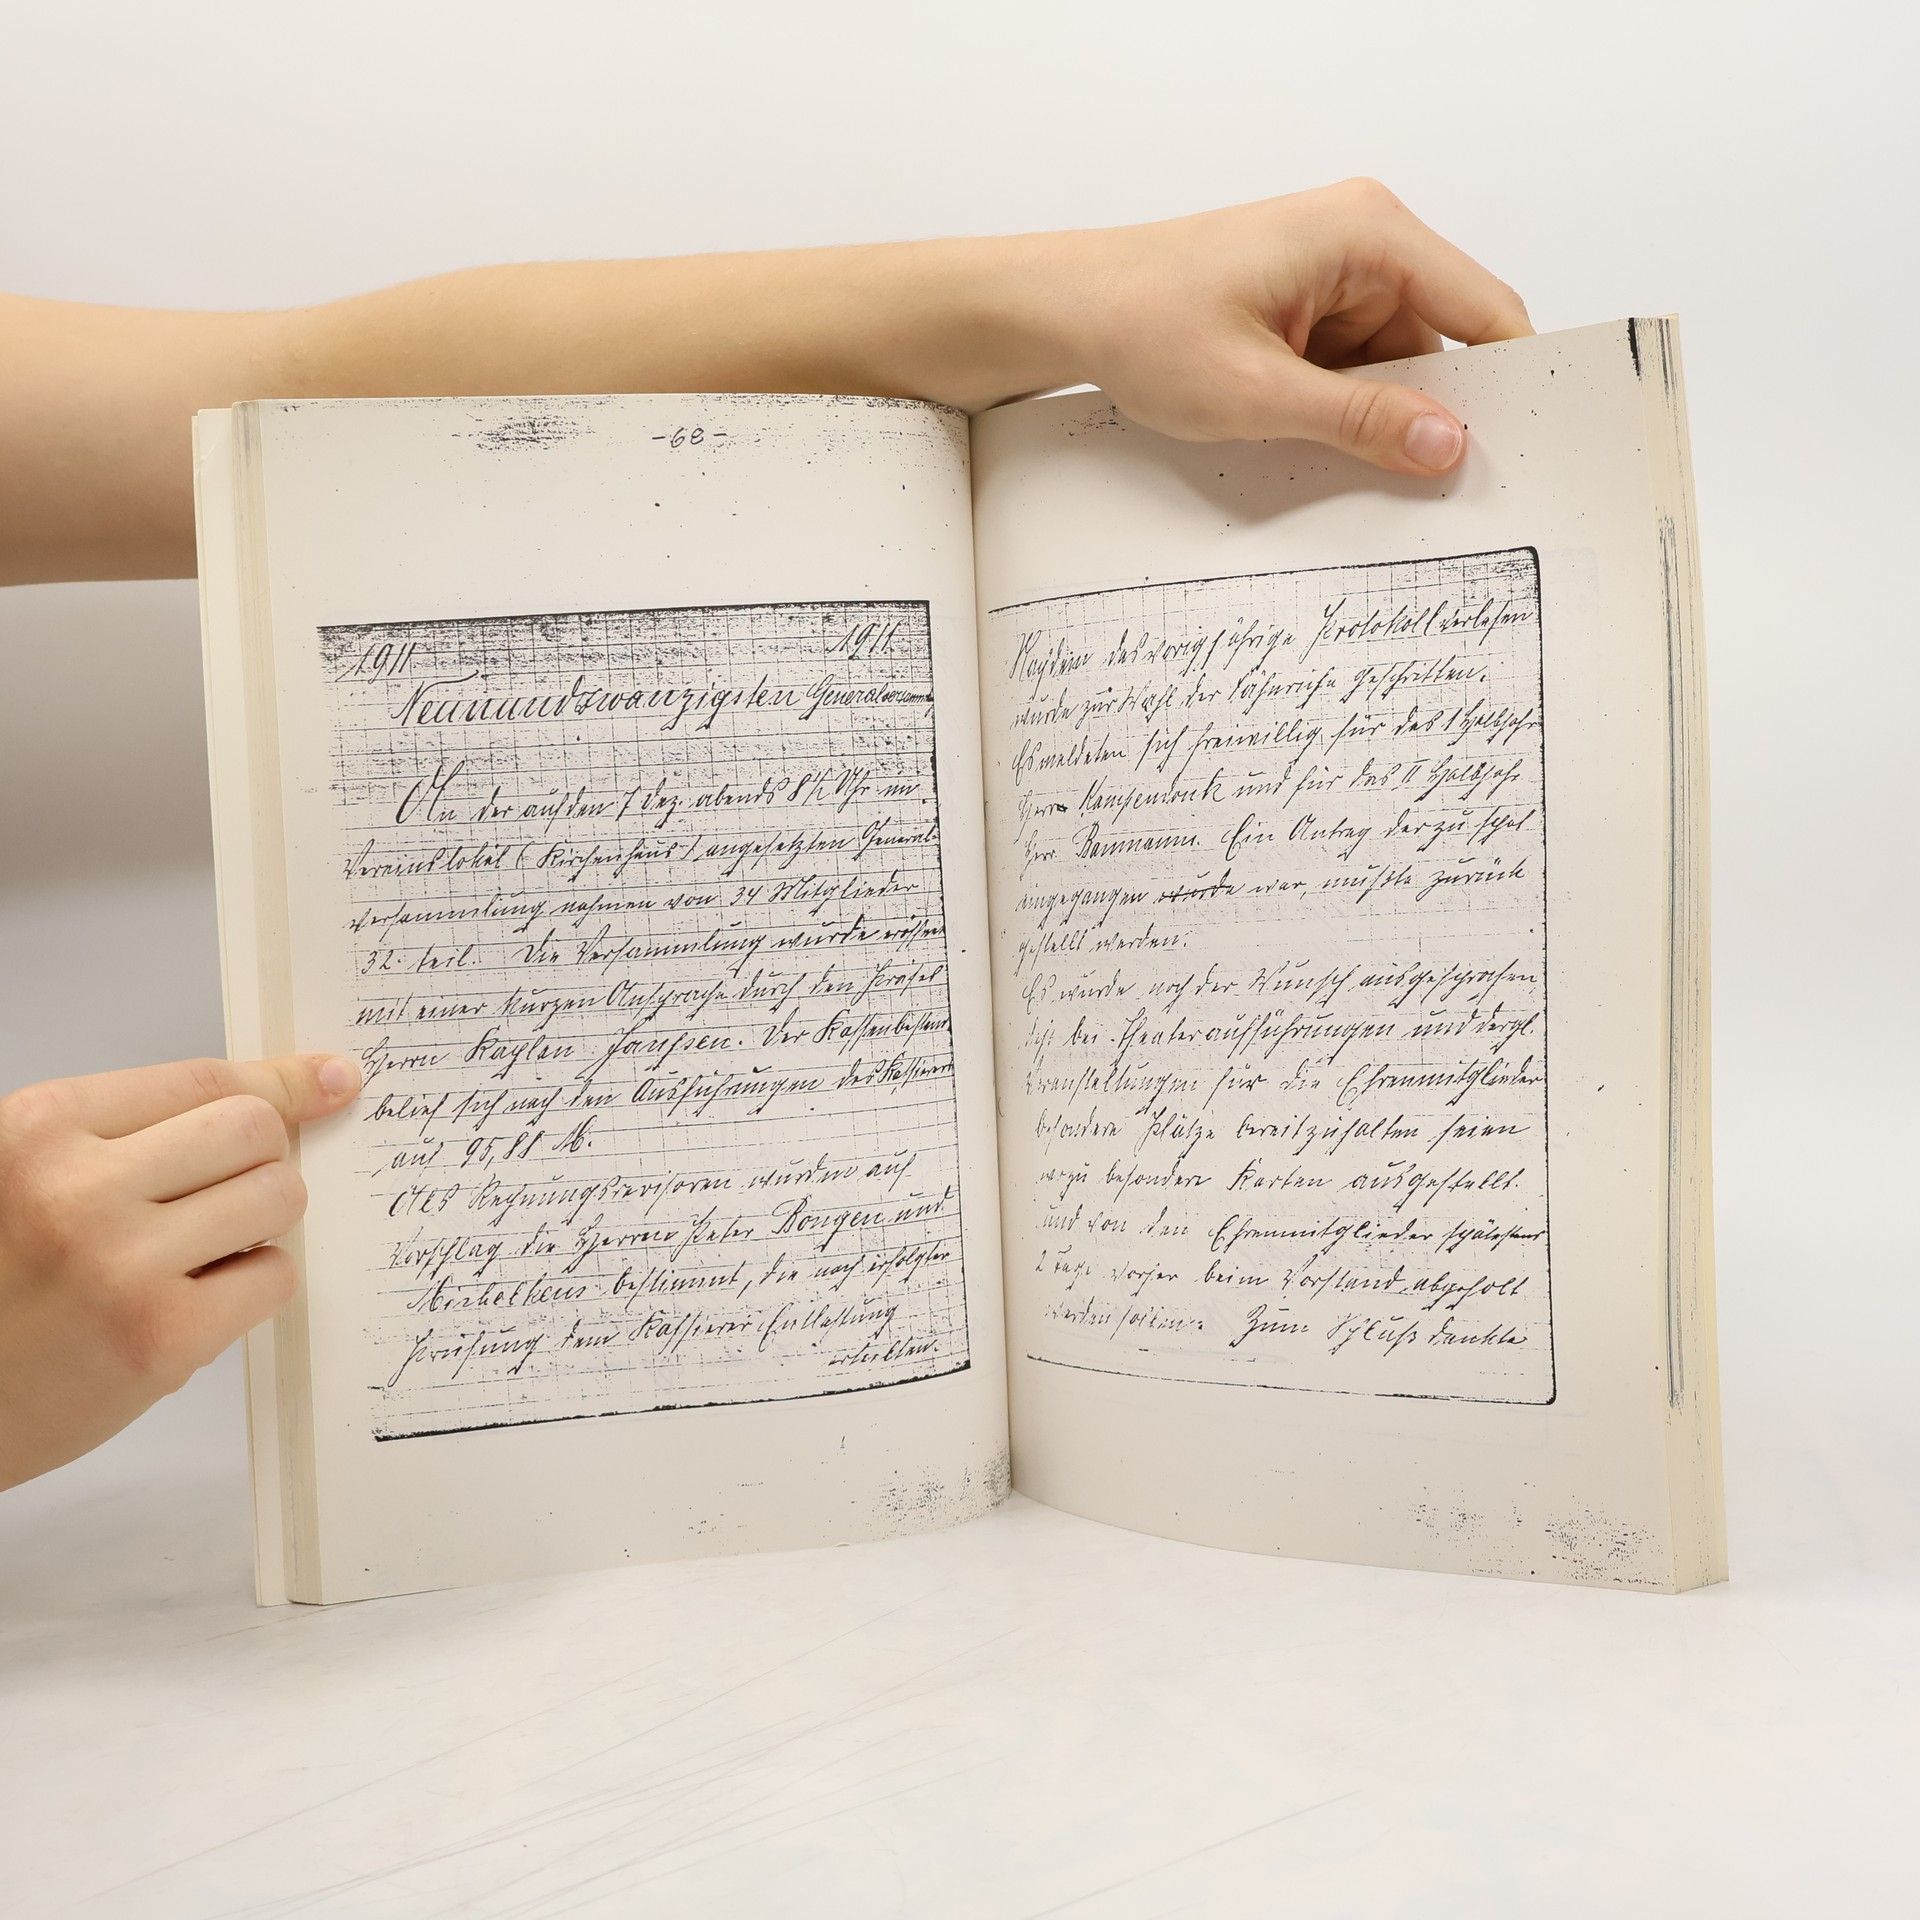 -68-
1911 1911
Neunundzwanzigsten Generalversammlg
An der auf den 7 Dez. abends 8½ Uhr im
Vereinslokal (Kirchenhaus) angesetzten General-
versammlung nahmen von 34 Mitglieder
32 teil. Die Versammlung wurde eröffnet
mit einer kurzen Ansprache durch den Präses
Herrn Kaplan Janßen. Der Kassenbestand
belief sich nach den Ausführungen des Kassierers
auf 95,88 M.
Als Rechnungsrevisoren wurden auf
Vorschlag die Herren Peter Bongen und
bestimmt, die nach erfolgter
Prüfung dem Kassierer Entlastung
erteilten.
Nachdem das vorigjährige Protokoll verlesen
wurde zur Wahl der Fähnriche geschritten.
Es meldeten sich freiwillig für das 1 Halbjahr
Herr Kampendonk und für das II Halbjahr
Herr Baumann. Ein Antrag der zu spät
eingegangen wurde war, mußte zurück
gestellt werden.
Es wurde noch der Wunsch ausgesprochen
daß bei Theateraufführungen und dergl.
Veranstaltungen für die Ehrenmitglieder
besondere Plätze bereitzuhalten seien
wozu besondere Karten ausgestellt.
und von den Ehrenmitglieder spätestens
2 Tage vorher beim Vorstand abgeholt
werden sollen. Zum Schluß dankte